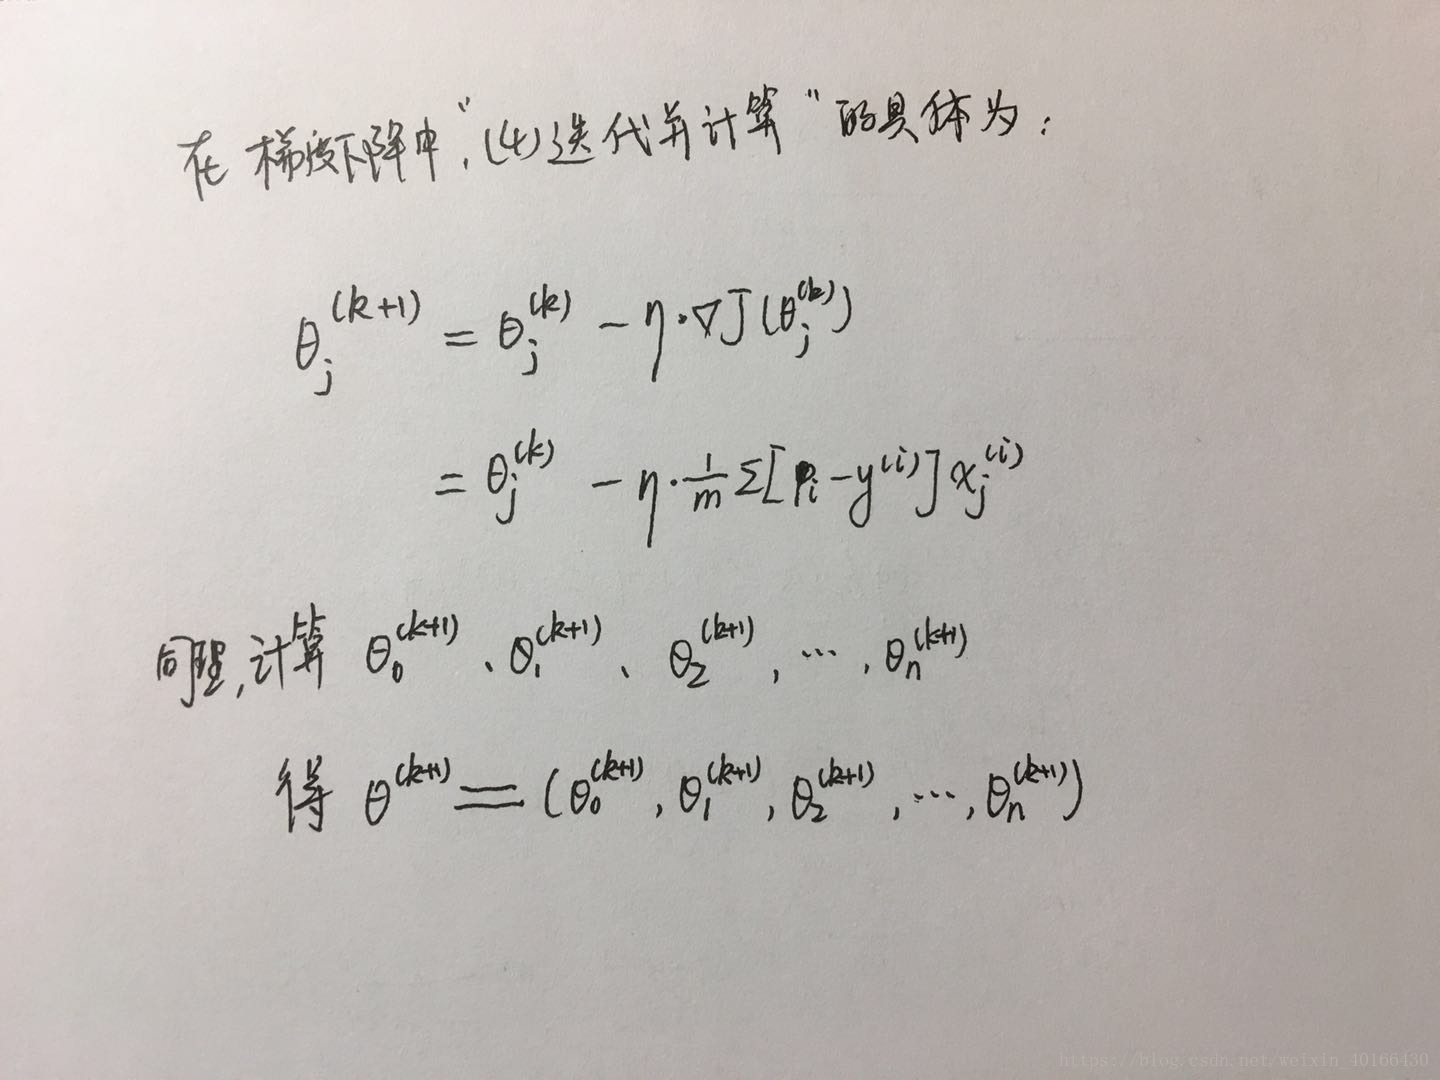 在梯度下降中，“(4)迭代并计算”的具体为：
θ_j^{(k+1)} = θ_j^{(k)} - η·∇J(θ_j^{(k)})
= θ_j^{(k)} - η·\frac{1}{m}Σ[p_i - y^{(i)}]x_j^{(i)}
同理,计算 θ_0^{(k+1)}、θ_1^{(k+1)}、θ_2^{(k+1)}, ···, θ_n^{(k+1)}
得 θ^{(k+1)} = (θ_0^{(k+1)}, θ_1^{(k+1)}, θ_2^{(k+1)}, ···, θ_n^{(k+1)})
https://blog.csdn.net/weixin_40166430